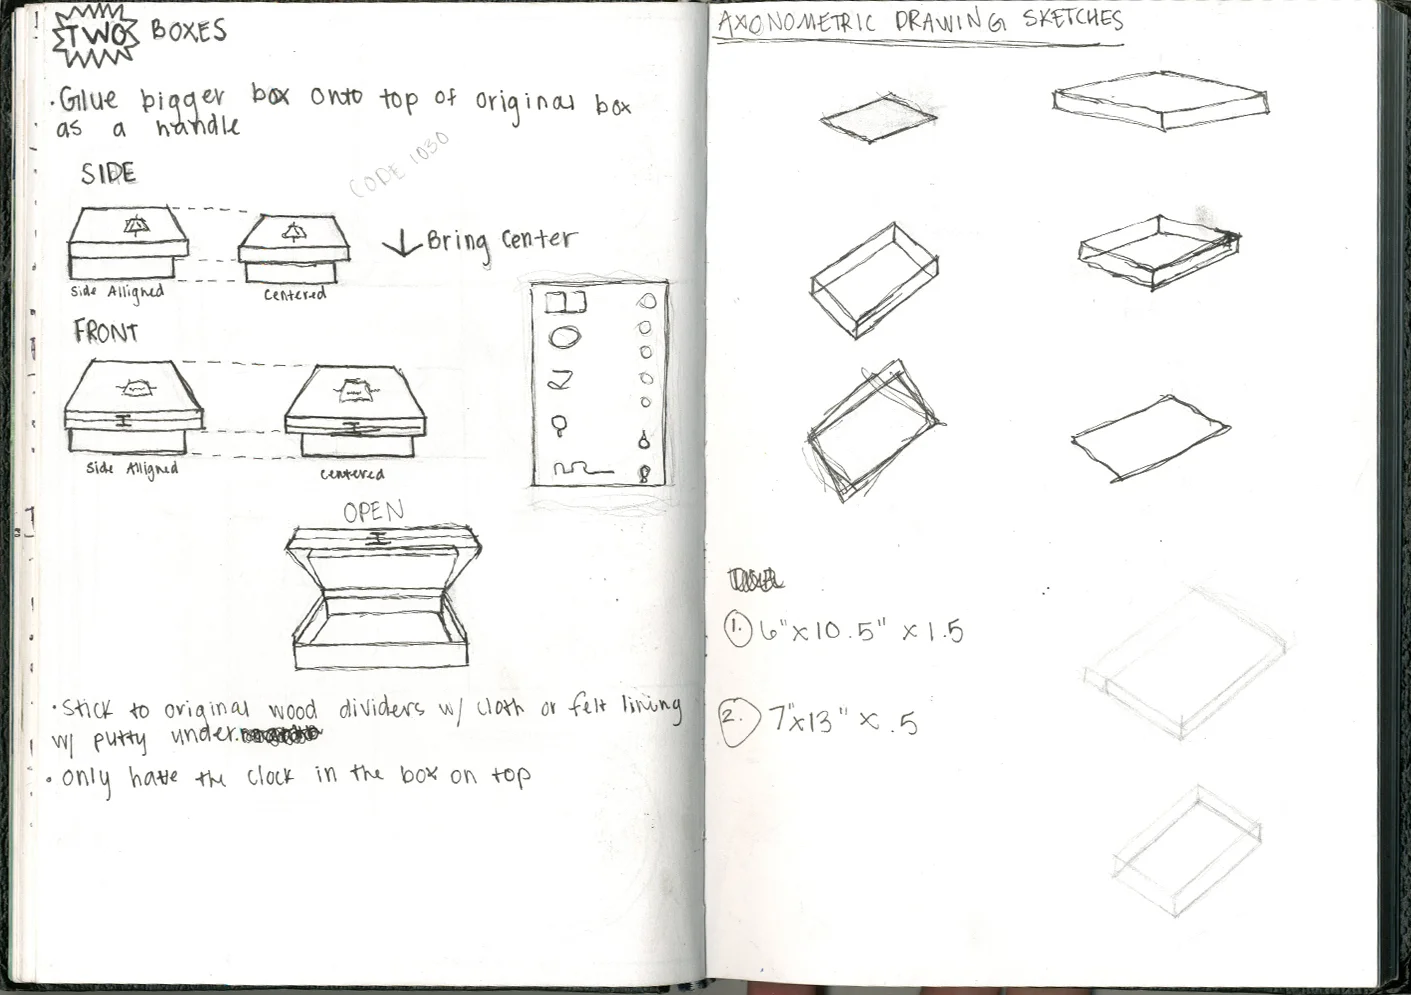 TWO BOXES
• Glue bigger box onto top of original box
as a handle
CODE 1030
SIDE
Side Alligned
Centered
↓ Bring Center
FRONT
Side Alligned
Centered
OPEN
• Stick to original wood dividers w/ cloth or felt lining
w/ putty under.
• only have the clock in the box on top
AXONOMETRIC DRAWING SKETCHES
1. 6" x 10.5" x 1.5
2. 7" x 13" x .5